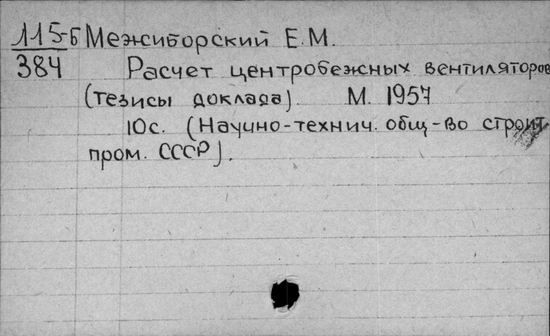 115-Б Межиборский Е.М.
384 Расчет центробежных вентиляторов
(тезисы доклада). М. 1957
10с. (Научно-технич. общ-во строит.
пром. СССР).